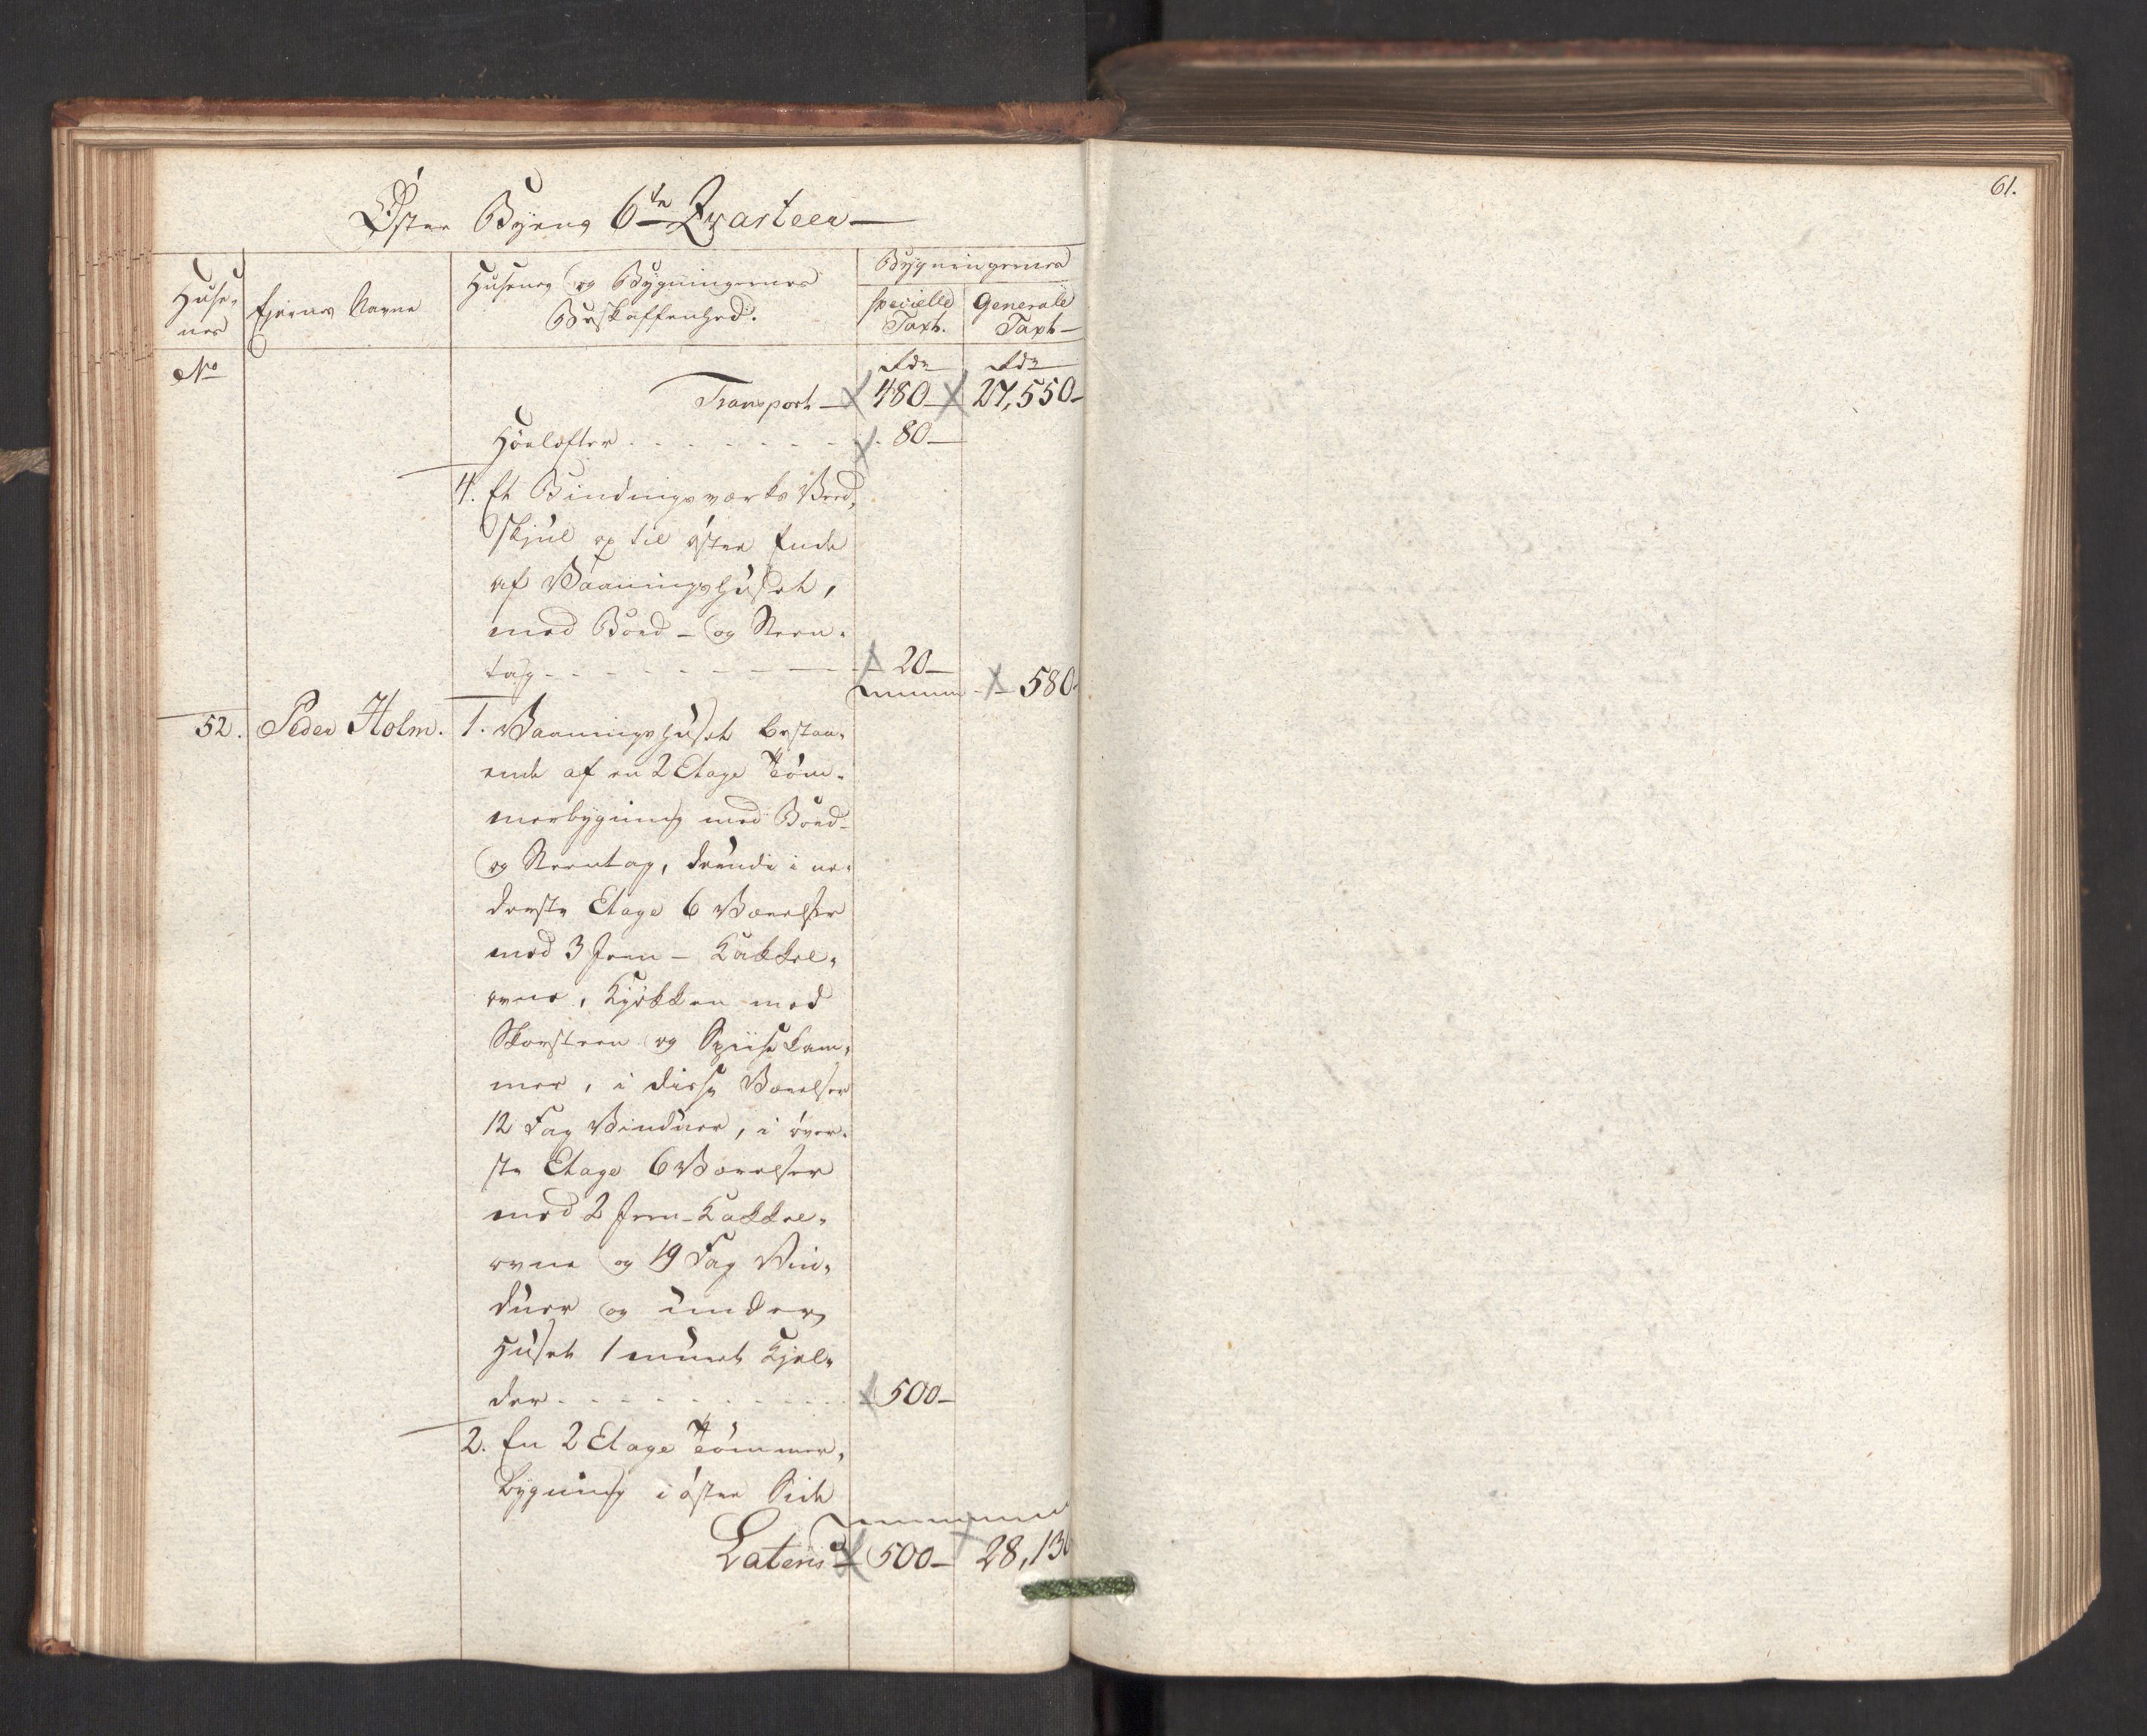 Øster Byens 6te Qvarteer
Huse-
nes
Ejernes Navne
Husenes og Bygningernes
Beskaffenhed.
Bygningernes
specielle
Taxt.
Generale
Taxt
No
Rdr
Rdr
Transport 480 27,550
Høelofter 80
4. Et Bindingsværks Ved-
skjul op til øster Ende
af Vaaningshuset,
med Bord- og Steen-
tag 20
580
52. Peder Holm. 1. Vaaningshuset bestaa-
ende af en 2 Etage Tøm-
merbygning med Bord-
og Steentag, deraf i ne-
derste Etage 6 Værelser
med 3 Jern-Kakkel-
ovne, Kjøkken med
Skorsteen og Spiisekam-
mer, i disse Værelser
12 Fag Vinduer, i øver-
ste Etage 6 Værelser
med 2 Jern-Kakkel-
ovne og 19 Fag Vin-
duer og under
Huset 1 muret Kjel-
der 500
2. En 2 Etage Tømmer-
bygning i øster Side
Lateris 500 28,130
61.